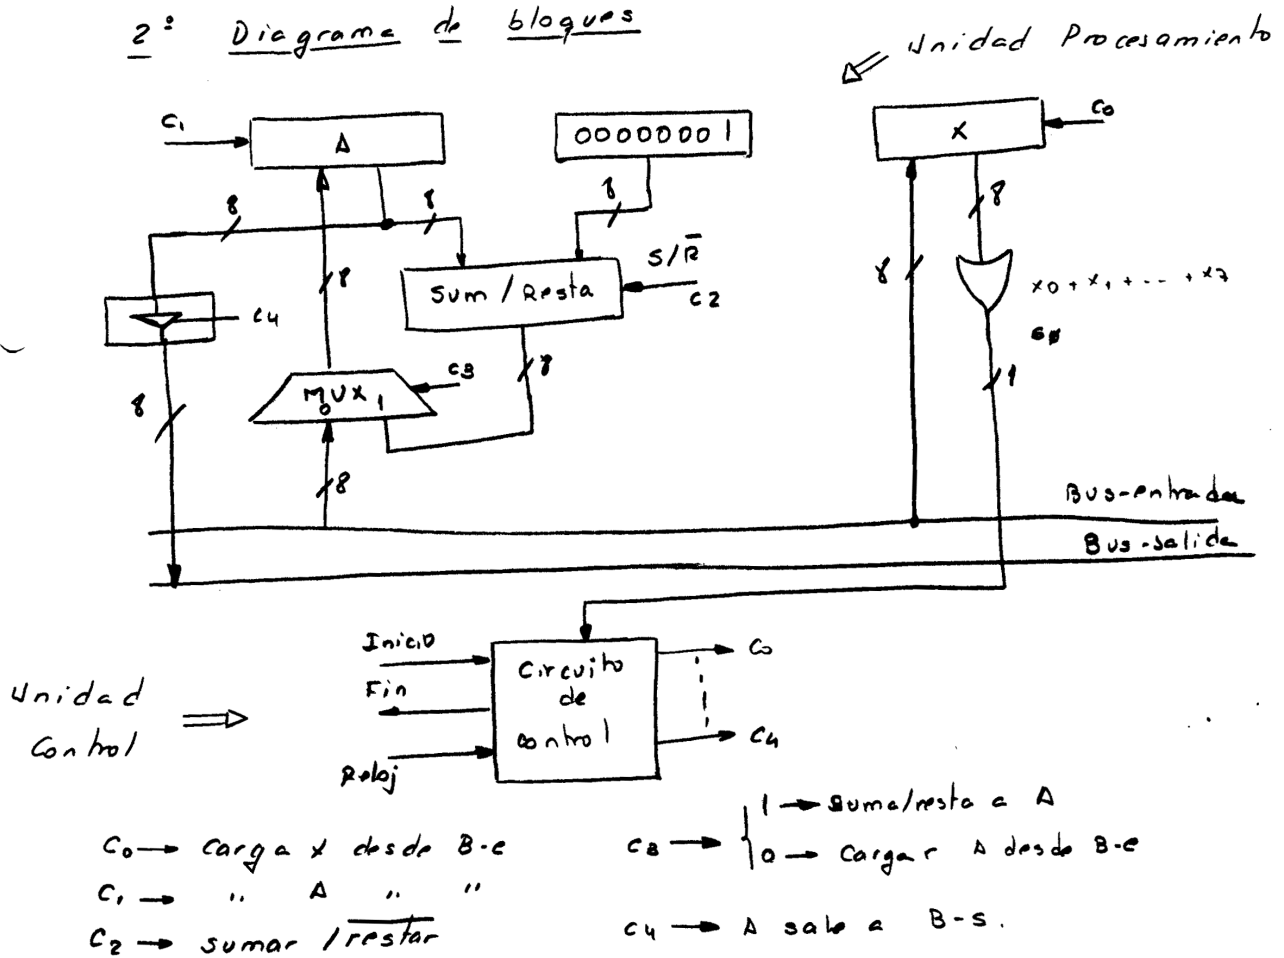 2º Diagrama de bloques
Unidad Procesamiento
C1
A
0000000 1
X
C0
8
8
8
8
8
8
S/R̅
Sum / Resta
C2
x0 + x1 + --- + x7
C4
s0
C3
MUX
0 1
8
8
8
1
Bus-entrada
Bus-salida
Inicio
Fin
Reloj
Circuito
de
control
C0
C4
Unidad
Control
C0 → Carga X desde B-e
C1 → " A " "
C2 → sumar / r̅e̅s̅t̅a̅r̅
C3 → { 1 → Suma/resta a A
0 → Cargar A desde B-e
C4 → A sale a B-S.